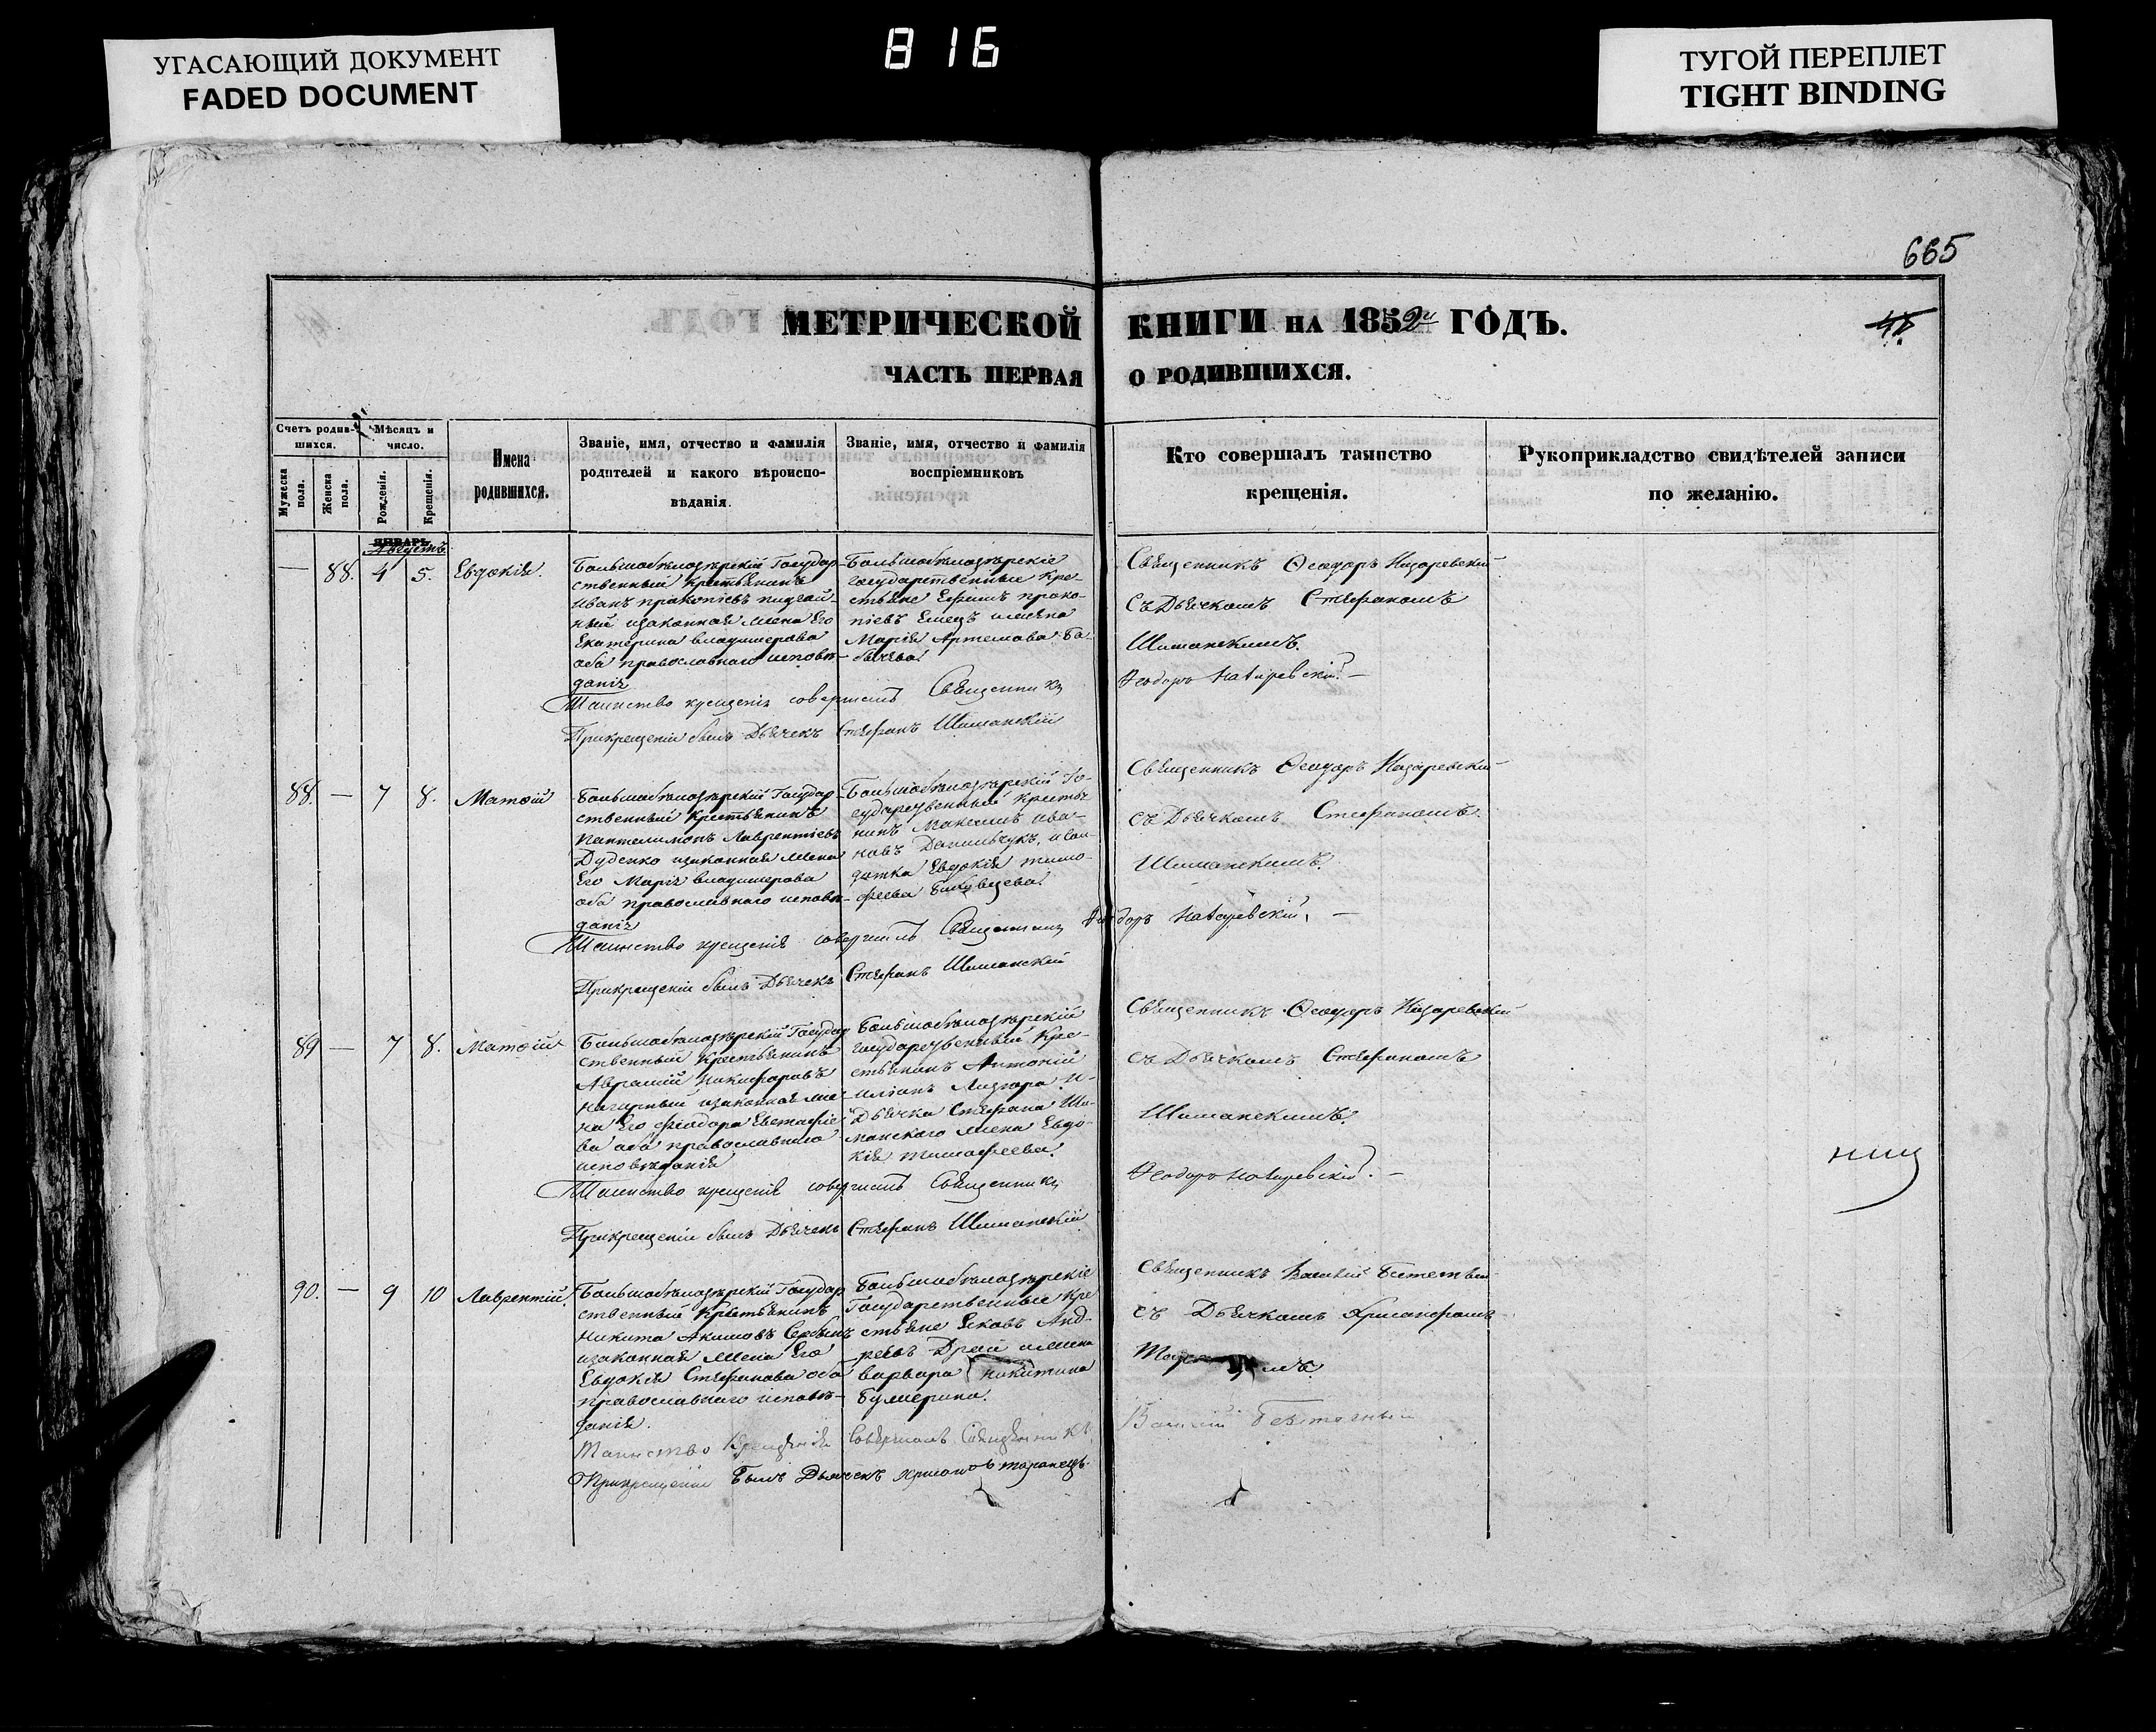 УГАСАЮЩИЙ ДОКУМЕНТ
FADED DOCUMENT
816
ТУГОЙ ПЕРЕПЛЕТ
TIGHT BINDING
665
МЕТРИЧЕСКОЙ КНИГИ НА 1852й ГОДЪ.
ЧАСТЬ ПЕРВАЯ О РОДИВШИХСЯ.
Счетъ родив-
шихся.
Мужеска пола.
Женска пола.
Мѣсяцъ и
число.
Рожденія.
Крещенія.
Имена
родившихся.
Званіе, имя, отчество и фамилія
родителей и какого вѣроиспо-
вѣданія.
Званіе, имя, отчество и фамилія
воспріемниковъ
Кто совершалъ таинство
крещенія.
Рукоприкладство свидѣтелей записи
по желанію.
ЯНВАРЬ
Августъ
— 88. 4 5. Евдокія.
Большобѣлозѣрскій Государ-
ственный крестьянинъ
Иванъ прокопіевъ
ный изаконная жена Его
Екатерина владимерова
оба православнаго исповѣ-
данія
Большобѣлозѣрскіе
государственные Кре-
стьяне Ефимъ проко-
піевъ Емецъ ижена
Марія Артемова Ба-
Священникъ Ѳеодоръ Назаревскій
Съ Дьячкомъ Стефаномъ
Шиманскимъ.
Таинство крещенія совершилъ Священникъ Ѳеодоръ Назаревскій. —
Прикрещеніи былъ Дьячекъ Стефанъ Шиманскій
88. — 7 8. Матѳій
Большобѣлозѣрскій Государ-
ственный крестьянинъ
Пантелимонъ Лаврентіевъ
Дуденко изаконная жена
Его Марія владимерова
оба православнаго исповѣ-
данія
Большобѣлозѣрскій Го-
сударственный Кресть
нинъ Максимъ ива-
новъ Данильчукъ, исол-
датка Евдокія тимо-
феева
Священникъ Ѳеодоръ Назаревскій
съ Дьячкомъ Стефаномъ
Шиманскимъ.
Таинство крещенія совершилъ Священникъ Ѳеодоръ Назаревскій. —
Прикрещеніи былъ Дьячекъ Стефанъ Шиманскій
89 — 7 8. Матѳій
Большобѣлозѣрскій Государ
ственный Крестьянинъ
Аврамій Никифоровъ
Нагирный изаконная же-
на Его Феодора Евстафіе-
ва оба православнаго
исповѣданія
Большобѣлозѣрскій
государственный Кре-
стьянинъ Антоній
И-
Дьячка Стефана Ши-
манского жена Евдо-
кія тимофеева.
Священникъ Ѳеодоръ Назаревскій
съ Дьячкомъ Стефаномъ
Шиманскимъ.
Таинство крещенія совершилъ Священникъ Ѳеодоръ Назаревскій. —
Прикрещеніи былъ Дьячекъ Стефанъ Шиманскій
90. — 9 10 Лаврентій.
Большобѣлозѣрскій Государ
ственный Крестьянинъ
Никита Акимовъ Сербинъ
изаконная жена Его
Евдокія Стефанова оба
православнаго исповѣ-
данія.
Большобѣлозѣрскіе
Государственные Кре
стьяне Яковъ Анд-
реевъ Драй ижена
варвара никитина
Священникъ Василій
съ Дьячкомъ Хрисанфомъ
Таинство Крещенія Совершилъ Священникъ Василій
Прикрещеніи Былъ Дьячекъ